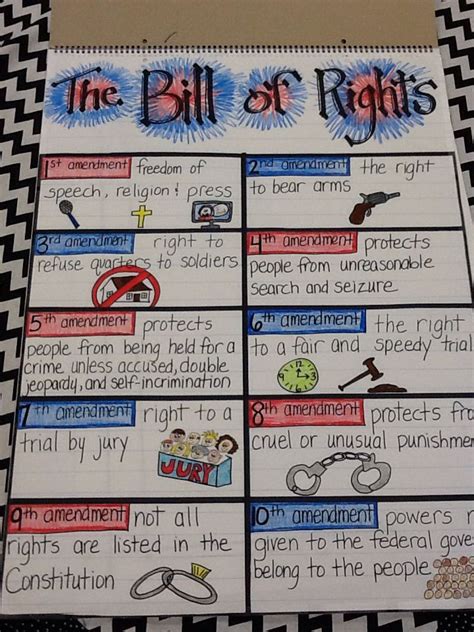 The Bill of Rights
1st amendment freedom of
speech, religion & press
2nd amendment the right
to bear arms
3rd amendment right to
refuse quarters to soldiers
4th amendment protects
people from unreasonable
search and seizure
5th amendment protects
people from being held for a
crime unless accused, double
jeopardy, and self-incrimination
6th amendment the right
to a fair and speedy trial
7th amendment right to a
trial by jury
JURY
8th amendment protects fro
cruel or unusual punishme
9th amendment not all
rights are listed in the
Constitution
10th amendment powers n
given to the federal gove
belong to the people